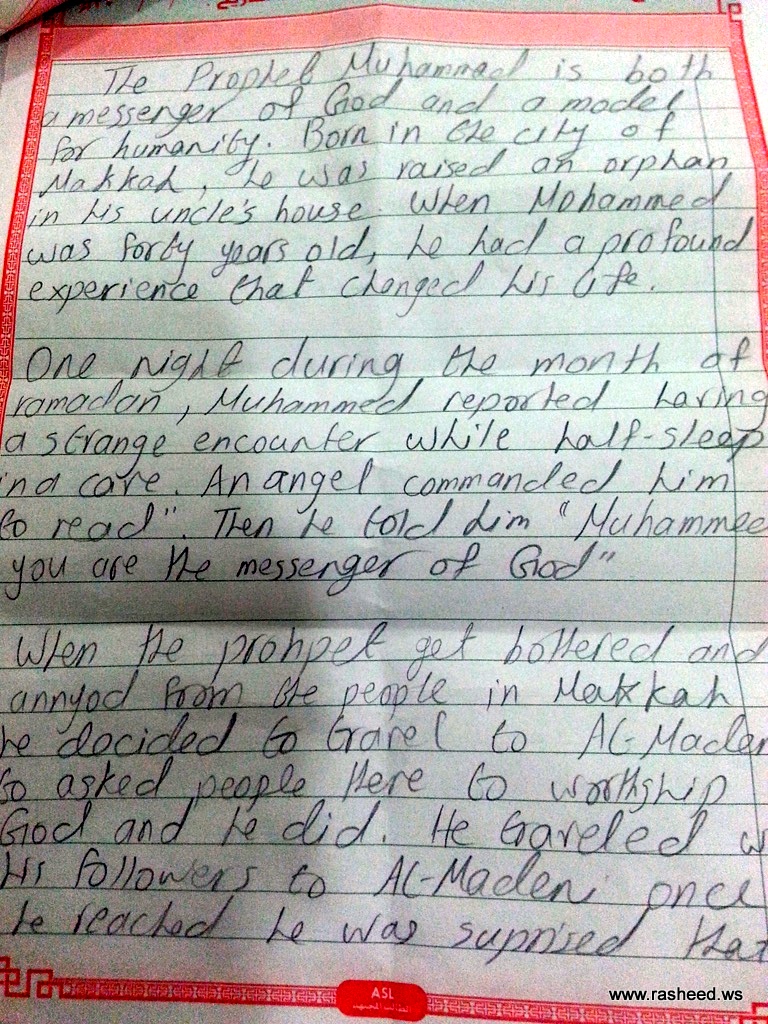 The Prophet Muhammad is both
a messenger of God and a model
for humanity. Born in the city of
Makkah, he was raised an orphan
in his uncle's house. When Mohammed
was forty years old, he had a profound
experience that changed his life.
One night during the month of
ramadan, Muhammed reported having
a strange encounter while half-sleep
in a cave. An angel commanded him
to read". Then he told him "Muhammed
you are the messenger of God"
When the prohpet get bothered and
annyod from the people in Makkah
he decided to travel to Al-Maden
to asked people there to worthship
God and he did. He traveled w
his followers to Al-Madeni once
he reached he was suprised that
ASL
www.rasheed.ws